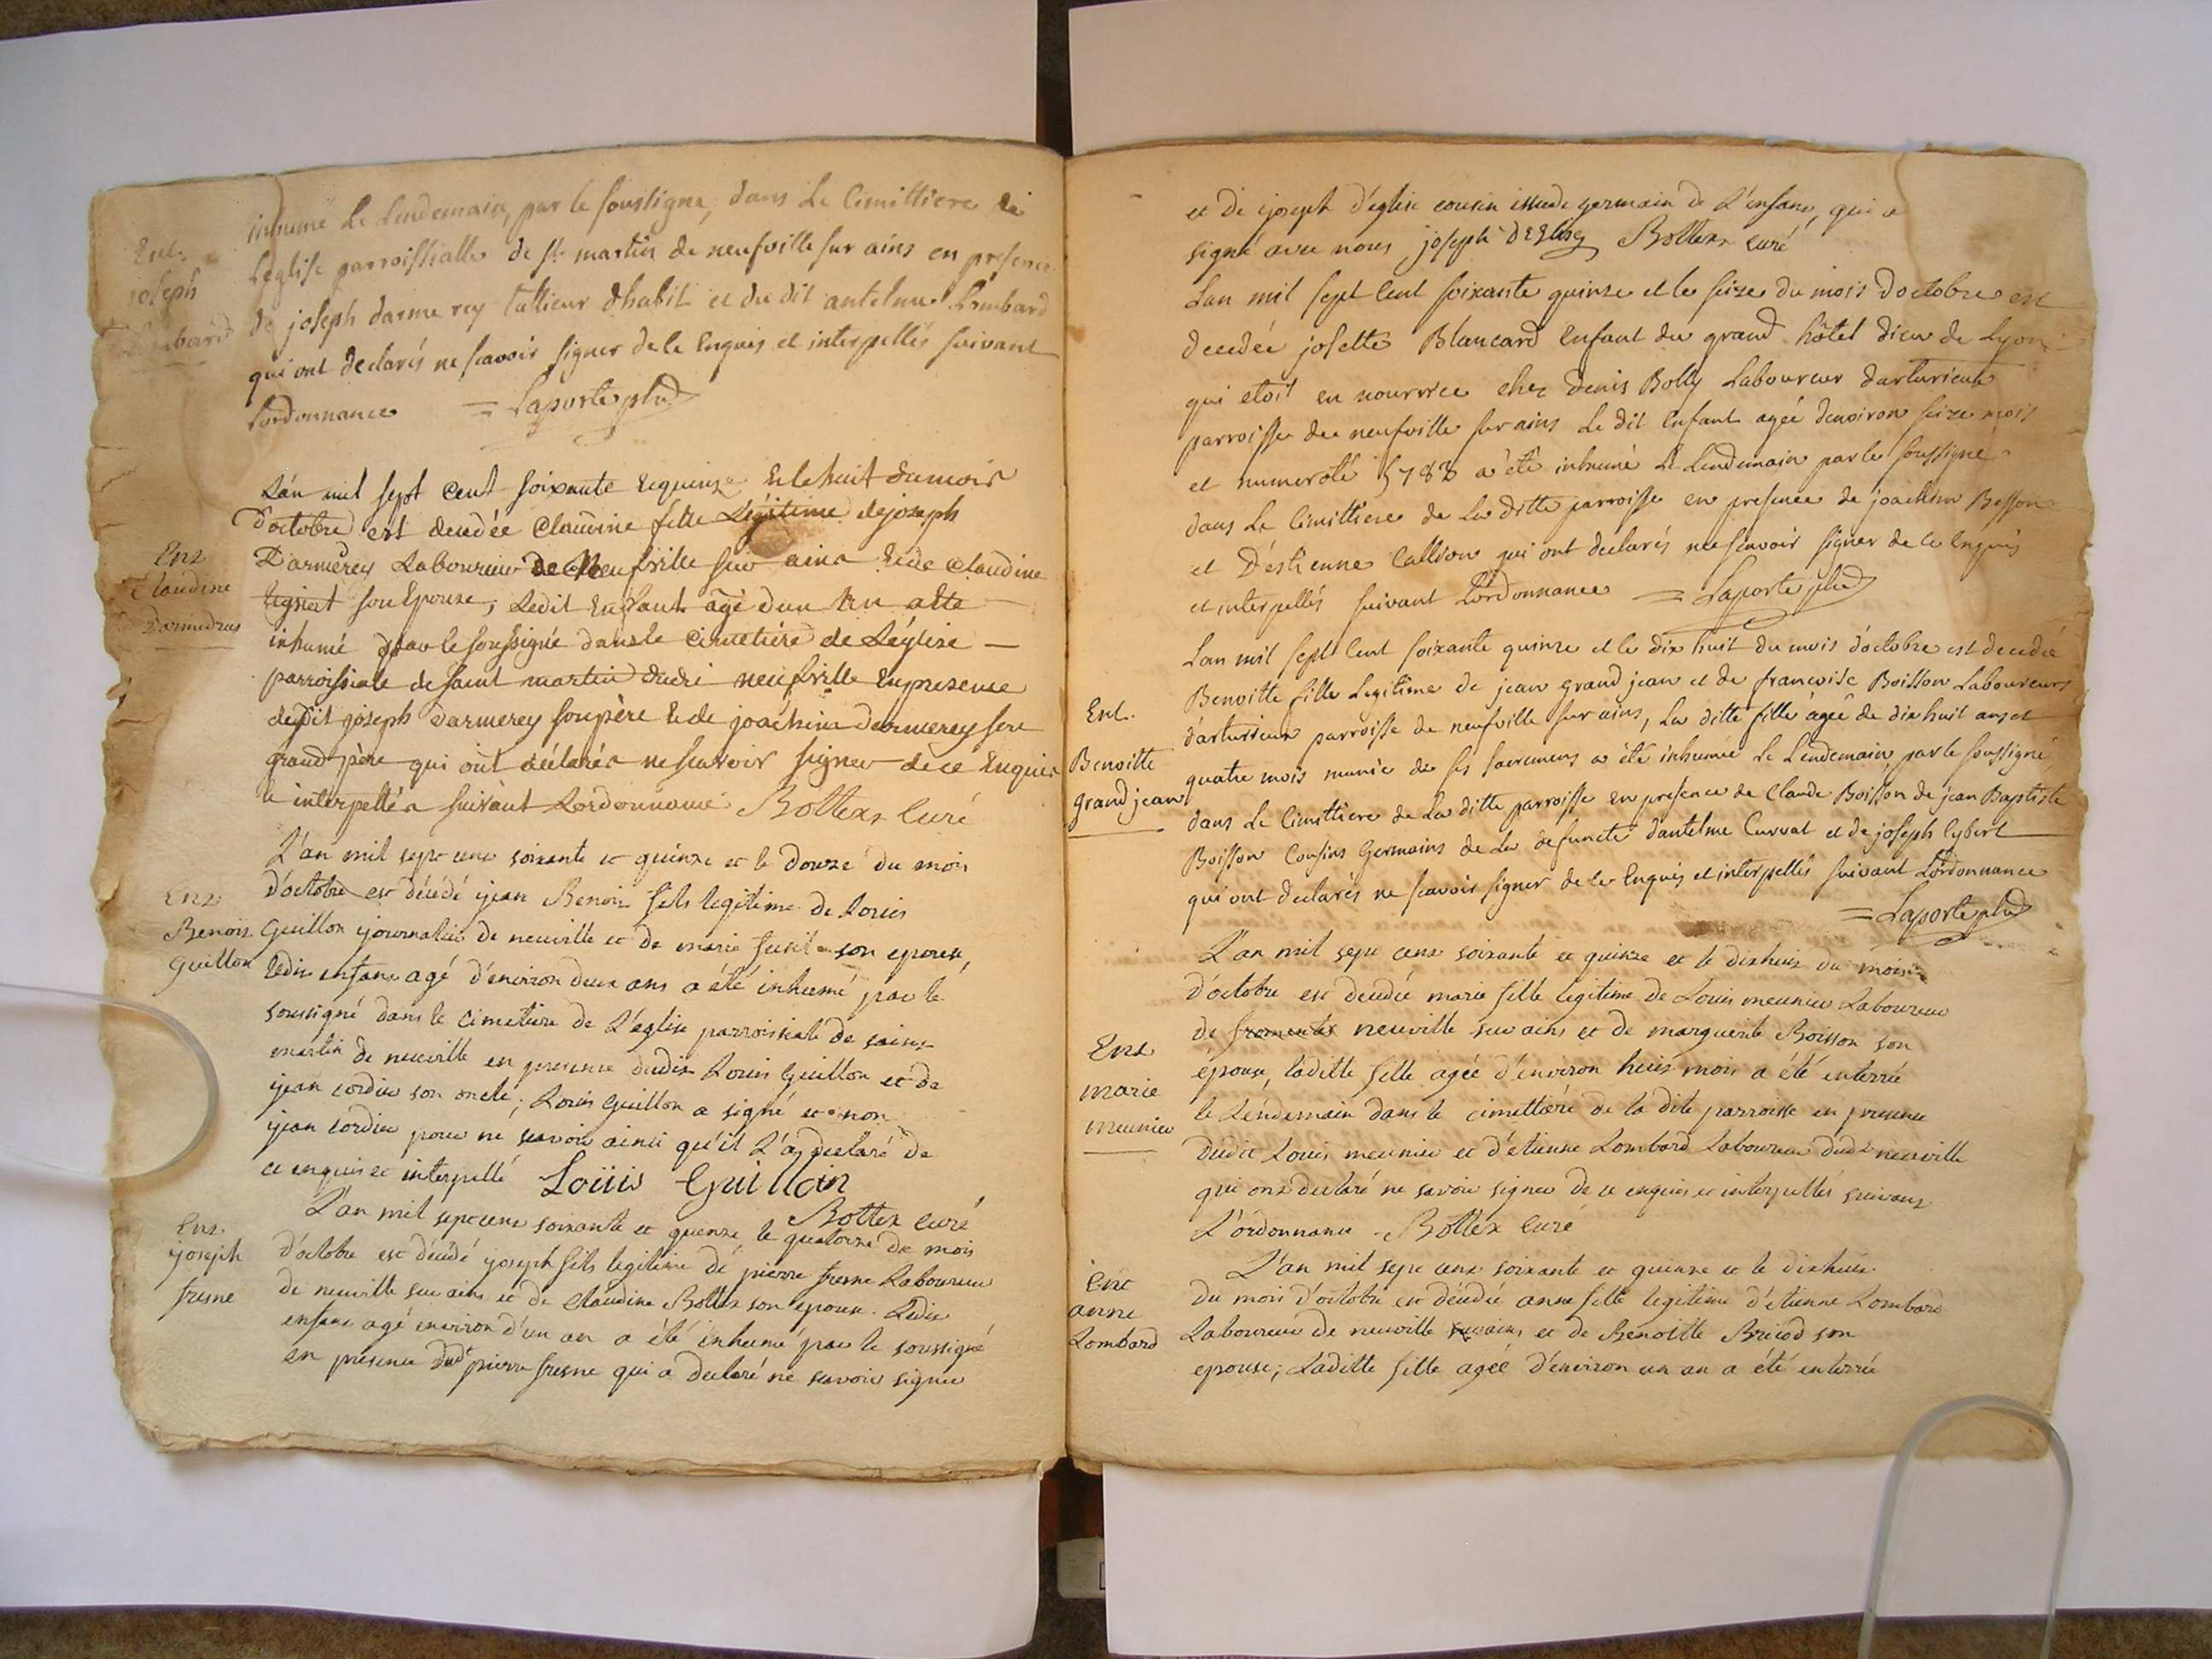 Ent.
joseph
Lombard
inhumé Le Lendemain, par le soussigné, dans Le Cimittiere de
Leglise parroissialle de st martin de neufville sur ains en presence
de joseph darmerey tallieur dhabit et du dit antelme Lombard
qui ont declarés ne scavoir signer de ce Enquis et interpellés suivant
Lordonnance = Laporte
Ent
Claudine
Darmerey
L'an mil sept cent soixante equinze Et le huit dumois
d'octobre est decedée Claudine fille Légitime dejoseph
Darmerey Laboureur de Neufville sur ains Et de Claudine
son Epouse; Ledit Enfant agé d'un an a été
inhumé par le soussigné dans le Cimetière de Léglise
parroissiale de saint martin dudi neufville En presence
dudit joseph Darmerey son père Et de joachim Darmerey son
grand père qui ont déclarés ne scavoir signer de ce Enquis
et interpellés suivant Lordonnance Bottex Curé
Ent
Benoit
Guillon
L'an mil sept cent soixante et quinze et le douze du mois
d'octobre est décédé jean Benoit fils legitime de Louis
Guillon journalier de neuville et de marie son epouse,
ledit enfant agé d'environ deux ans a été inhumé par le
soussigné dans le cimetiere de L'eglise parroissiale de saint
martin de neuville en presence dudit Louis Guillon et de
jean cordier son oncle; Louis Guillon a signé et non
jean cordier pour ne savoir ainsi qu'il L'a declaré de
ce enquis et interpellé Loüis Guillon
Bottex curé
Ent.
joseph
fresne
L'an mil sept cent soixante et quinze le quatorze de mois
d'octobre est décédé joseph fils legitime de pierre fresne Laboureur
de neuville sur ains et de Claudine Bottex son epouse. Ledit
enfant agé environ d'un an a été inhumé par le soussigné
en presence dudt pierre fresne qui a declaré ne savoir signer
et de joseph d'église cousin issu de germain de L'enfant, qui a
signé avec nous joseph DEGlise Bottex curé
Lan mil sept Cent soixante quinze et le seize du mois doctobre est
decedée josette Blancard Enfant du grand hôtel dieu de Lyon
qui etoit en nourrice chez Denis Bolly Laboureur darturieux
parroisse de neufville sur ains Le dit Enfant agée denviron seize mois
et numeroté 5782 a été inhumé Le Lendemain par le soussigné
dans Le Cimittiere de La ditte parroisse en presence de joachim Besson
et D'estienne Callion qui ont declarés ne scavoir signer de ce Enquis
et interpellés suivant L'ordonnance = Laporte
Ent.
Benoitte
grand jean
Lan mil sept Cent soixante quinze et le dix huit du mois d'octobre est decedée
Benoitte fille Legitime de jean grand jean et de francoise Boisson Laboureurs
d'arturieux parroisse de neufville sur ains, La ditte fille agée de dix huit ans et
quatre mois munie de ses sacremens a été inhumée Le Lendemain, par le soussigné,
dans Le Cimittiere de La ditte parroisse en presence de Claude Boisson de jean Baptiste
Boisson Cousins Germains de La defuncte dantelme Curval et de joseph
qui ont declarés ne scavoir signer de ce Enquis et interpellés suivant Lordonnance
= Laporte
Ent
marie
meunier
L'an mil sept cent soixante et quinze et le dixhuit du mois
d'octobre est decedée marie fille legitime de Louis meunier Laboureur
de fromentes neuville sur ains et de marguerite Boisson son
épouse, laditte fille agée d'environ huit mois a été enterrée
le Lendemain dans le cimettiere de la dite parroisse en presence
dudit Louis meunier et d'etienne Lombard Laboureur dudt neuville
qui ont declaré ne savoir signer de ce enquis et interpellés suivant
L'ordonnance. Bottex curé
Ent
anne
Lombard
L'an mil sept cent soixante et quinze et le dixhuit
du mois d'octobre est décédée anne fille legitime d'etienne Lombard
Laboureur de neuville sur ains et de Benoitte Bricod son
epouse; Laditte fille agée d'environ un an a été enterrée